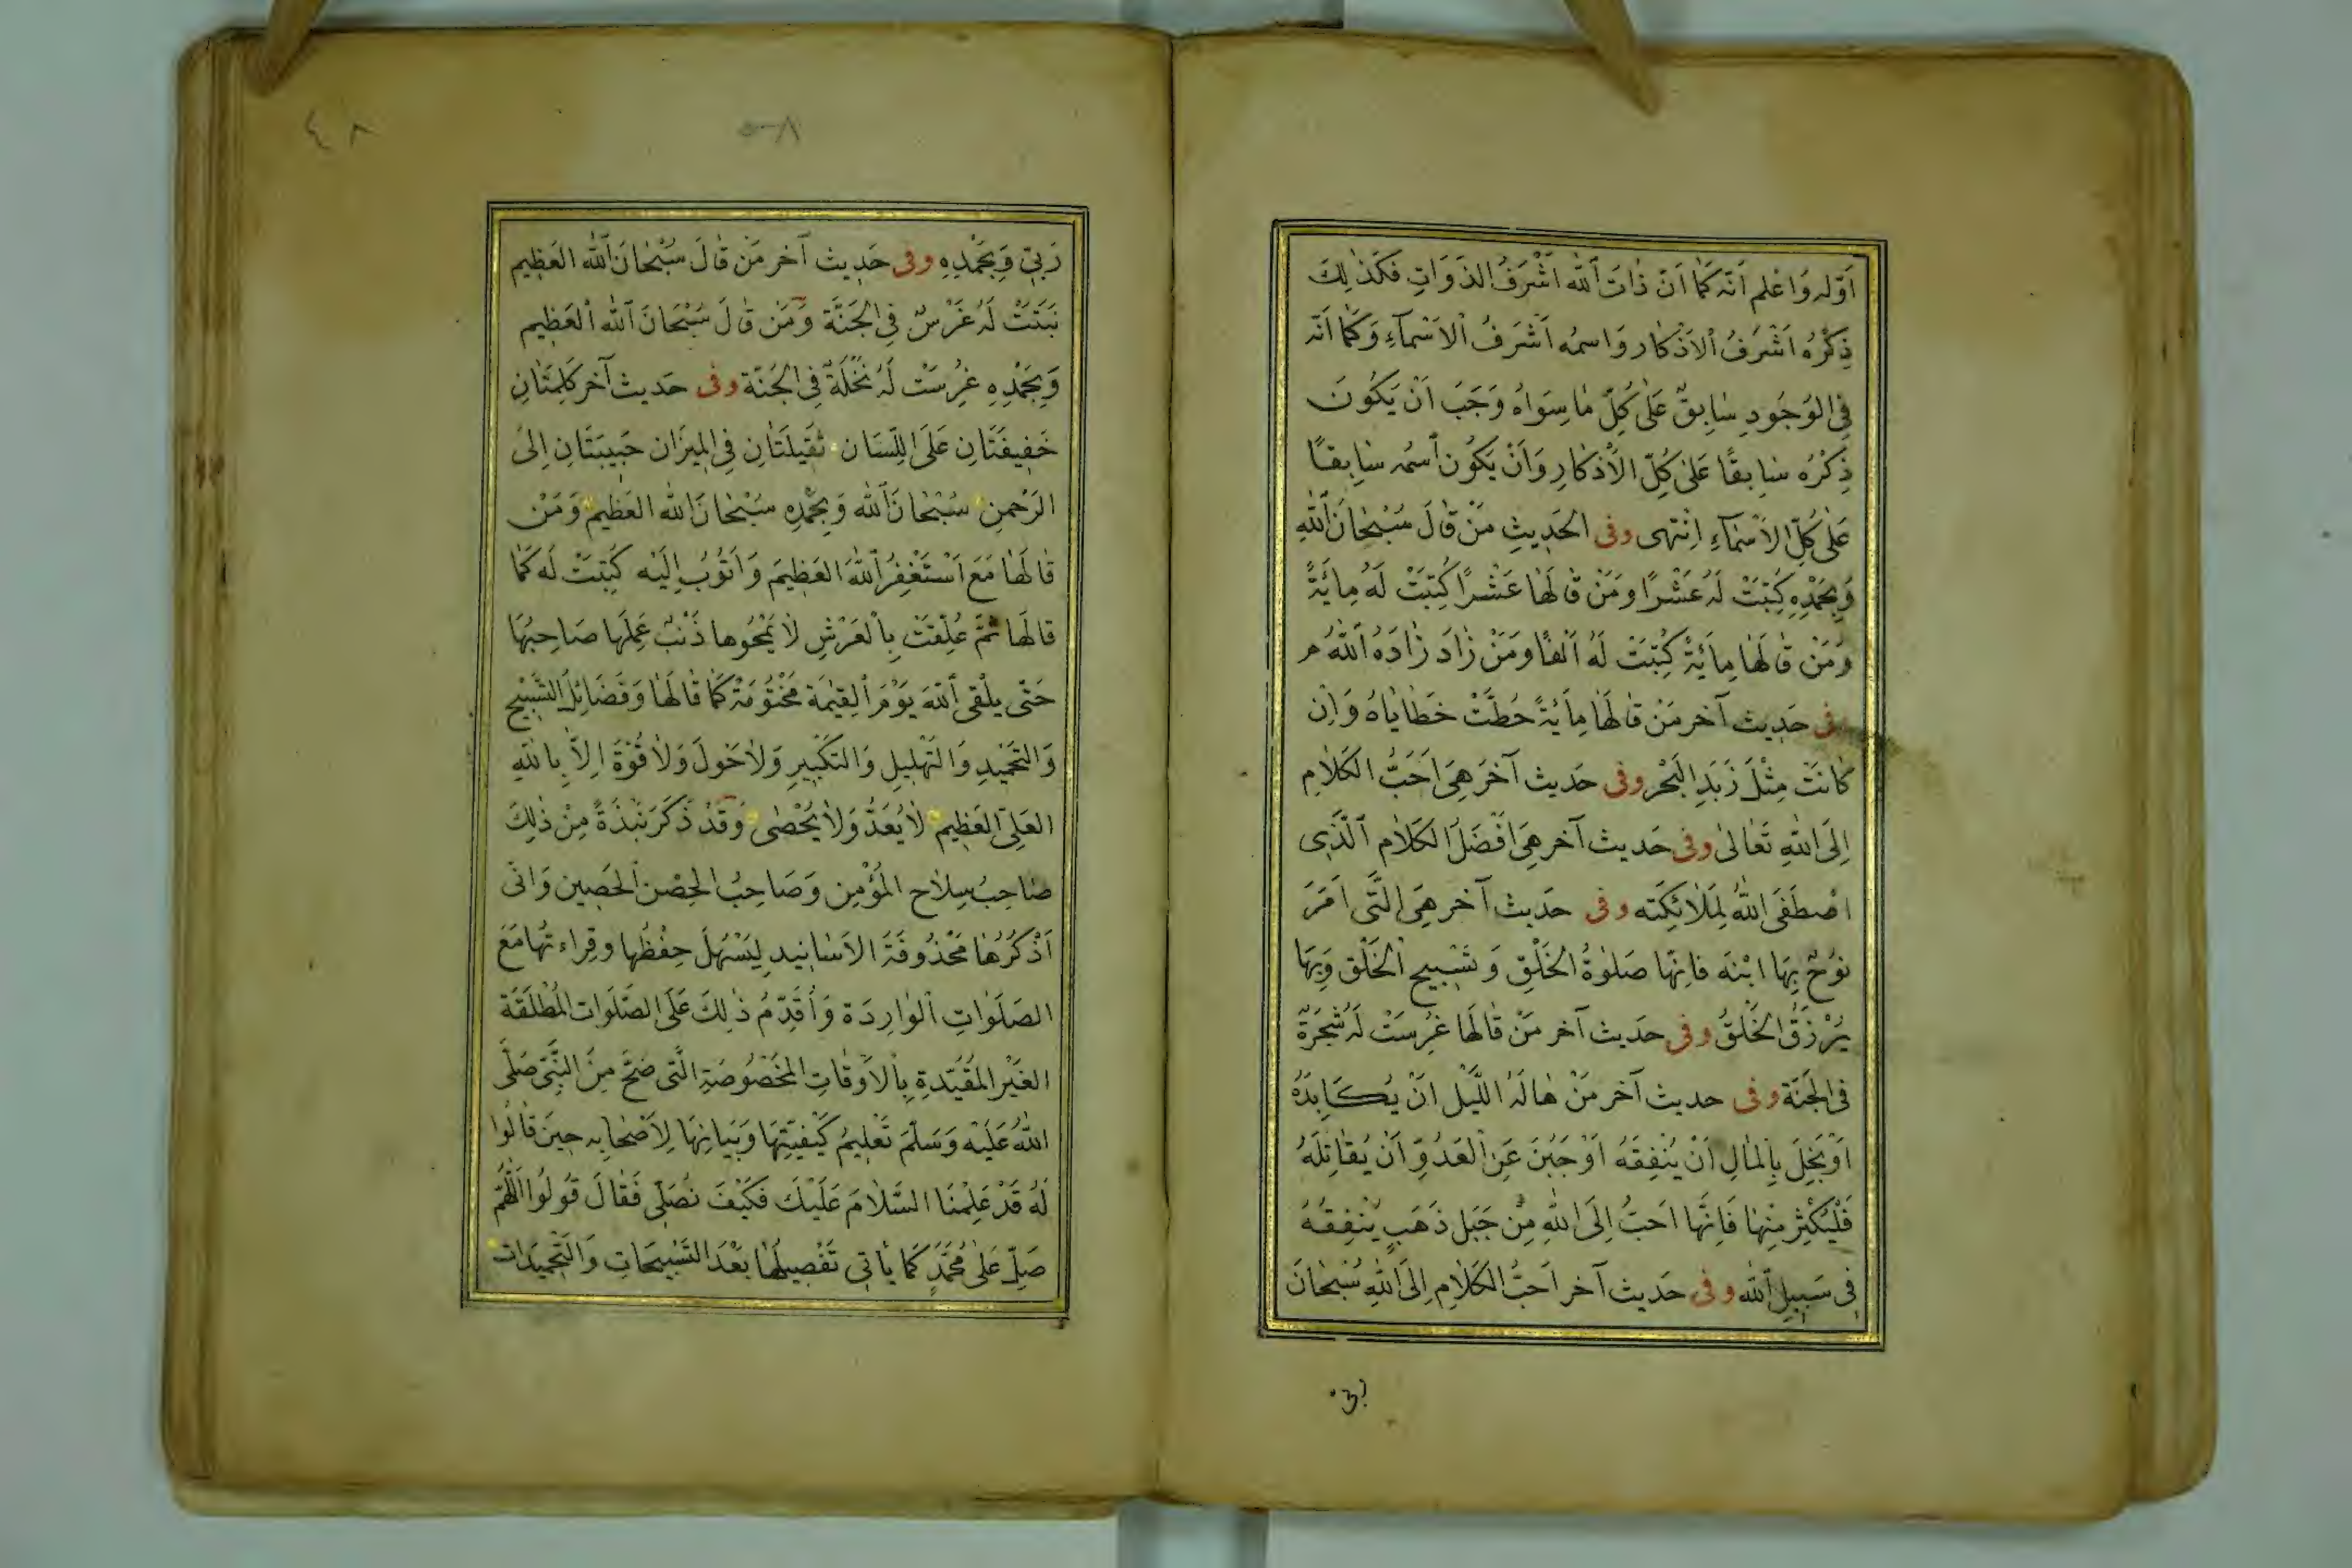 اَوَّلِه وَاعْلم اَنَّه كَمَا اَنَّ ذَاتَ اللّٰه اَشْرَفُ الذَّوَاتِ فَكَذٰلِكَ
ذِكْرُهُ اَشْرَفُ الاَذْكَار وَاسمُه اَشْرَفُ الاَسْمَآءِ وَكَمَا اَنَّه
فِى الوُجُودِ سَابِقٌ عَلٰى كُلِّ مَا سِوَاهُ وَجَبَ اَنْ يَكُونَ
ذِكْرُه سَابِقًا عَلٰى كُلِّ الاَذكَارِ وَاَنْ يَكُون اسمُه سَابِقًا
عَلٰى كُلِّ الاَسْمَآءِ اِنْتَهى وفى الحَدِيثِ مَنْ قَالَ سُبْحَانَ اللّٰهِ
وَبِحَمْدِهِ كُتِبَتْ لَهُ عَشْرًا وَمَنْ قَالَهَا عَشْرًا كُتِبَتْ لَهُ مِائَةً
وَمَن قَالَهَا مِائَةً كُتِبَتْ لَهُ اَلْفًا وَمَنْ زَادَ زَادَهُ اللّٰهُ م
فى حَدِيث آخر مَنْ قَالَهَا مِائَةً حُطَّتْ خَطَايَاهُ وَاِن
كَانَتْ مِثْلَ زَبَدِ البَحْر وفى حَدِيث آخَر هِىَ اَحَبُّ الكَلَامِ
اِلَى اللّٰهِ تَعَالٰى وفى حَديث آخر هِىَ اَفْضَلُ الكَلَام الَّذِى
اصْطَفَى اللّٰهُ لِمَلَائِكَتِه وفى حَدِيث آخر هِىَ الَّتى اَمَرَ
نُوحٌ بِهَا ابْنَه فَاِنَّهَا صَلٰوةُ الخَلْقِ وَتَسْبِيح الخَلْق وَبِهَا
يُرْزَقُ الخَلْقُ وفى حَدِيث آخر مَنْ قَالَهَا غُرِسَتْ لَهُ شَجَرَةٌ
فى الجَنَّة وفى حديث آخر مَنْ هَالَهُ اللَّيْل اَنْ يُكَابِدَهُ
اَوْ بَخِلَ بِالمَالِ اَنْ يُنْفِقَهُ اَوْ جَبُنَ عَنِ العَدُوِّ اَنْ يُقَاتِلَهُ
فَلْيُكْثِرْ مِنْهَا فَاِنَّهَا اَحَبُّ اِلَى اللّٰهِ مِنْ جَبَل ذَهَبٍ يُنْفِقُهُ
فى سَبِيلِ اللّٰه وفى حَدِيث آخر اَحَبُّ الكَلَامِ اِلَى اللّٰهِ سُبْحَانَ
٤٨
رَبِّى وَبِحَمْدِهِ وفى حَدِيث آخر مَنْ قَالَ سُبْحَانَ اللّٰه العَظِيم
نَبَتَتْ لَهُ غَرْسٌ فِى الجَنَّة وَمَن قَالَ سُبْحَانَ اللّٰه العَظِيم
وَبِحَمْدِهِ غُرِسَتْ لَهُ نَخْلَةٌ فِى الجَنَّة وفى حَديث آخر كَلِمَتَانِ
خَفِيفَتَانِ عَلَى اللِّسَان ثَقِيلَتَانِ فِى المِيزَان حَبِيبَتَانِ اِلَى
الرَّحْمنِ سُبْحَانَ اللّٰه وَبِحَمْدِه سُبْحَانَ اللّٰه العَظِيم وَمَنْ
قَالَهَا مَعَ اَسْتَغْفِرُ اللّٰهَ العَظِيمَ وَاَتُوبُ اِلَيْه كُتِبَتْ لَه كَمَا
قالَهَا ثُمَّ عُلِّقَتْ بِالعَرْشِ لَا يَمْحُوها ذَنْبٌ عَمِلَهَا صَاحِبُهَا
حَتّٰى يلْقى اللّٰهَ يَوْمَ القِيٰمَة مَخْتُومَةً كَمَا قَالَهَا وَفَضَائِلُ التَّسْبِيْحِ
وَالتَّحْمِيدِ وَالتَّهْلِيلِ وَالتَّكْبِيرِ وَلَا حَولَ وَلَا قُوَّةَ اِلَّا بِاللّٰهِ
العَلِىِّ العَظِيم لَا يُعَدُّ وَلَا يُحْصٰى وَقَدْ ذَكَرَ نُبْذَةً مِنْ ذٰلِكَ
صَاحِبُ سِلَاح المُؤْمِن وَصَاحِبُ الحِصْن الحَصِين وَانى
اَذْكُرُهَا مَحْذُوفَةَ الاَسَانِيد لِيَسْهُلَ حِفْظُهَا وقِراءتُها مَعَ
الصَّلَوَاتِ الوَارِدَة وَاُقَدِّمُ ذٰلِكَ عَلَى الصَّلَوَات المُطْلَقَة
الغَيْر المُقَيَّدةِ بِالاَوْقَاتِ المَخْصُوصَةِ الَّتى صَحَّ مِنَ النَّبِىِّ صَلَّى
اللّٰهُ عَلَيْه وَسَلَّمَ تَعْلِيمُ كَيْفِيَّتِهَا وَبَيَانِهَا لِاَصْحَابِه حِينَ قَالُوا
لَهُ قَدْ عَلِمْنَا السَّلَامَ عَلَيْكَ فَكَيْفَ نُصَلِّى فَقَالَ قُولُوا اللّٰهُمَّ
صَلِّ عَلٰى مُحَمَّدٍ كَمَا يَأتِى تَفْصِيلُهَا بَعْدَ التَّسْبِيحَاتِ وَالتَّحْمِيدَات